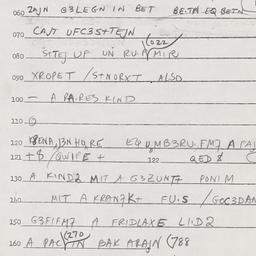 060 ZAJN G3LEGN IN BET BETN EQ BETN
070 CAJT UFC3S+TEJN
(022
080 S+TEJ UP UN RU.P MIR
090 XROPET / S+NORXT. ALSO
100 — A PA.PES KIND
110 0
120 EQ U,MB3RU.FM7 A PAI
121 +8 /QWIPE + 122 QED 8
130 A KIND2 MIT A G3ZUNT+ PONIM
140 MIT A KRAN7K+ FU.S / GOC3DAN
150 G3FIFM7 A FRIDLAXE LI.D2
(270
160 A PAC BAK ARAJN (788